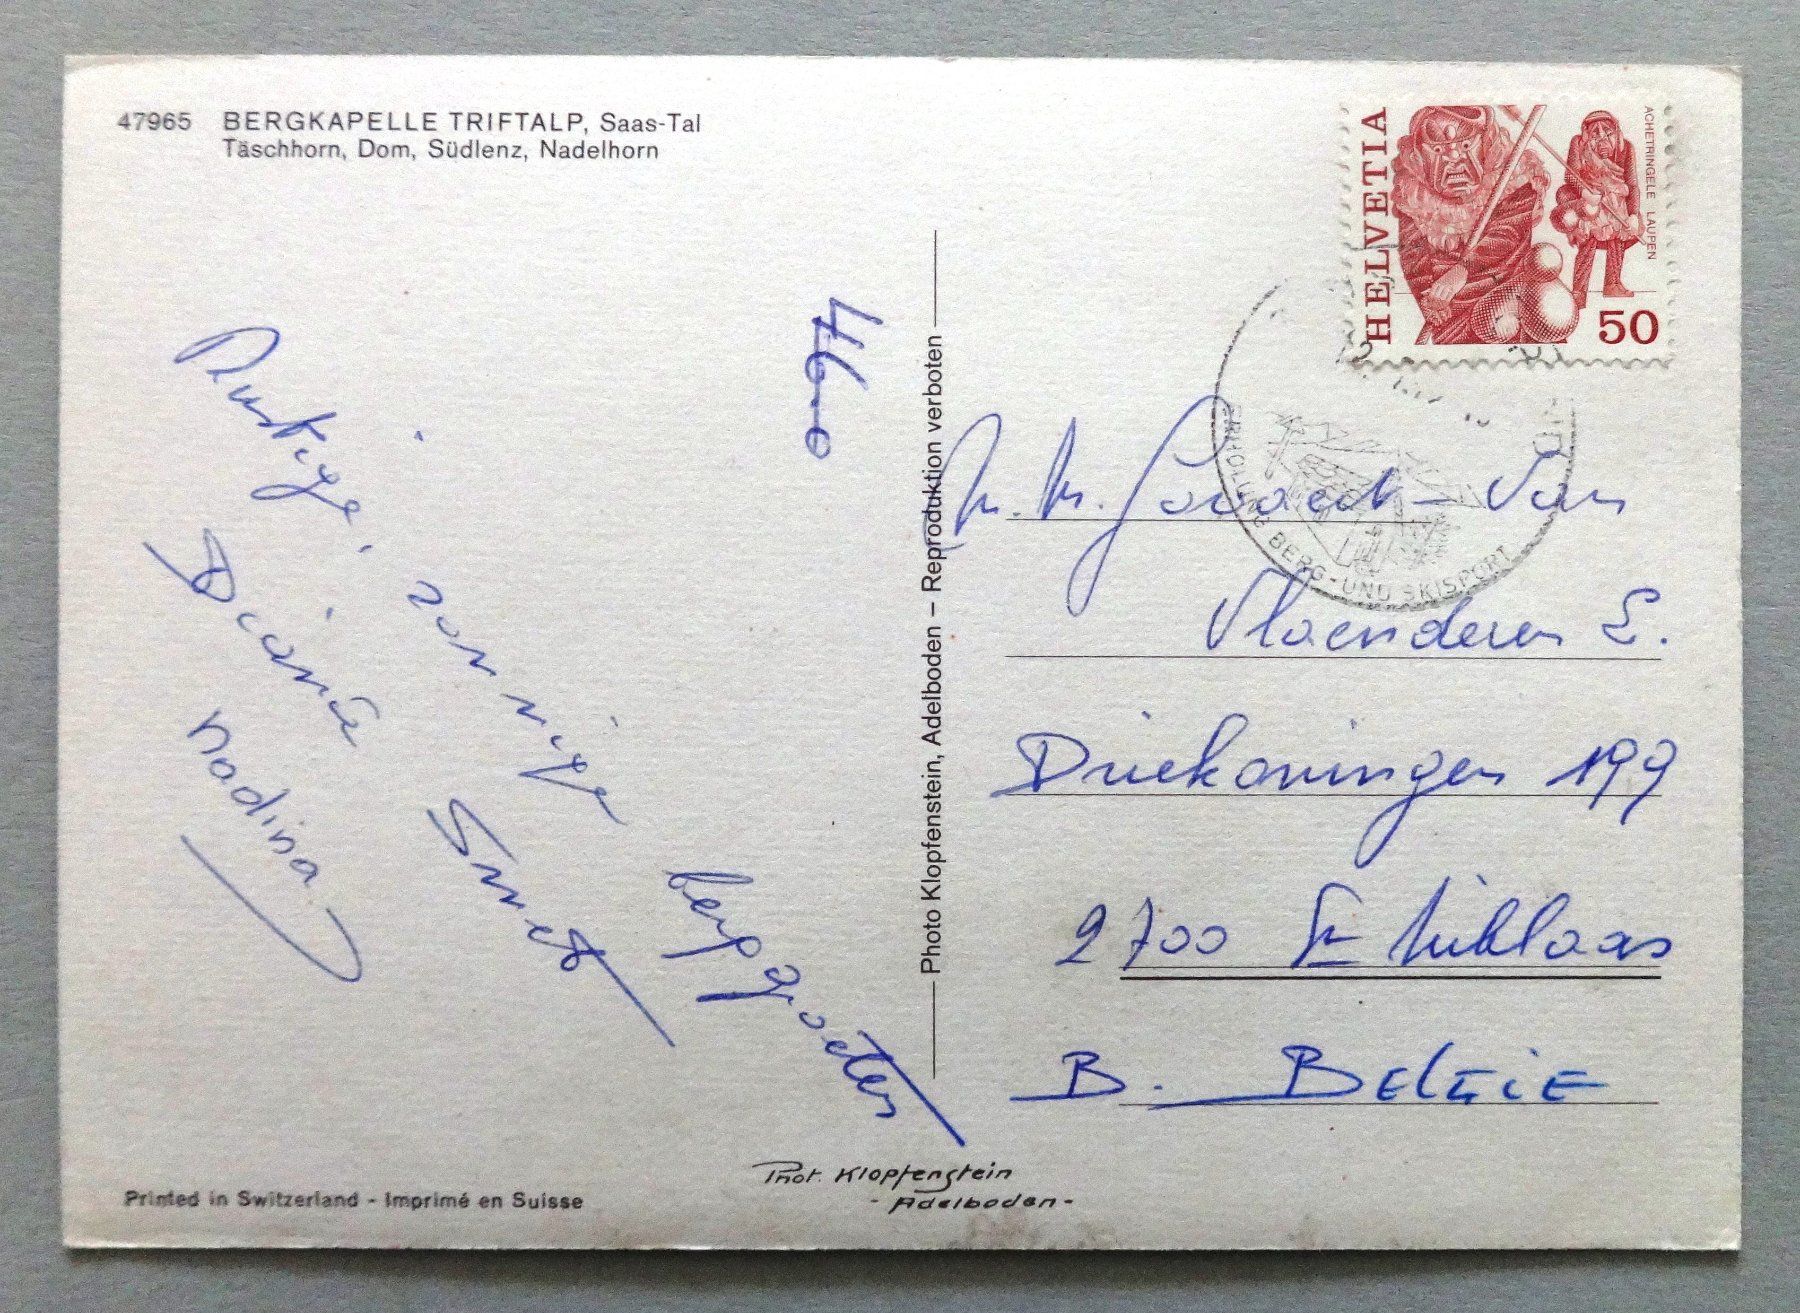 47965 BERGKAPELLE TRIFTALP, Saas-Tal
Täschhorn, Dom, Südlenz, Nadelhorn
Rustige, zonnige berggroeten
Diane Smet
Nadina
Photo Klopfenstein, Adelboden – Reproduktion verboten
HELVETIA
ACHETRINGELE LAUPEN
50
ERHOLUNG BERG-UND SKISPORT
Van
Vlaenderen E.
Driekoningen 199
2700 St Niklaas
B. BELGIE
Phot. Klopfenstein
- Adelboden -
Printed in Switzerland - Imprimé en Suisse